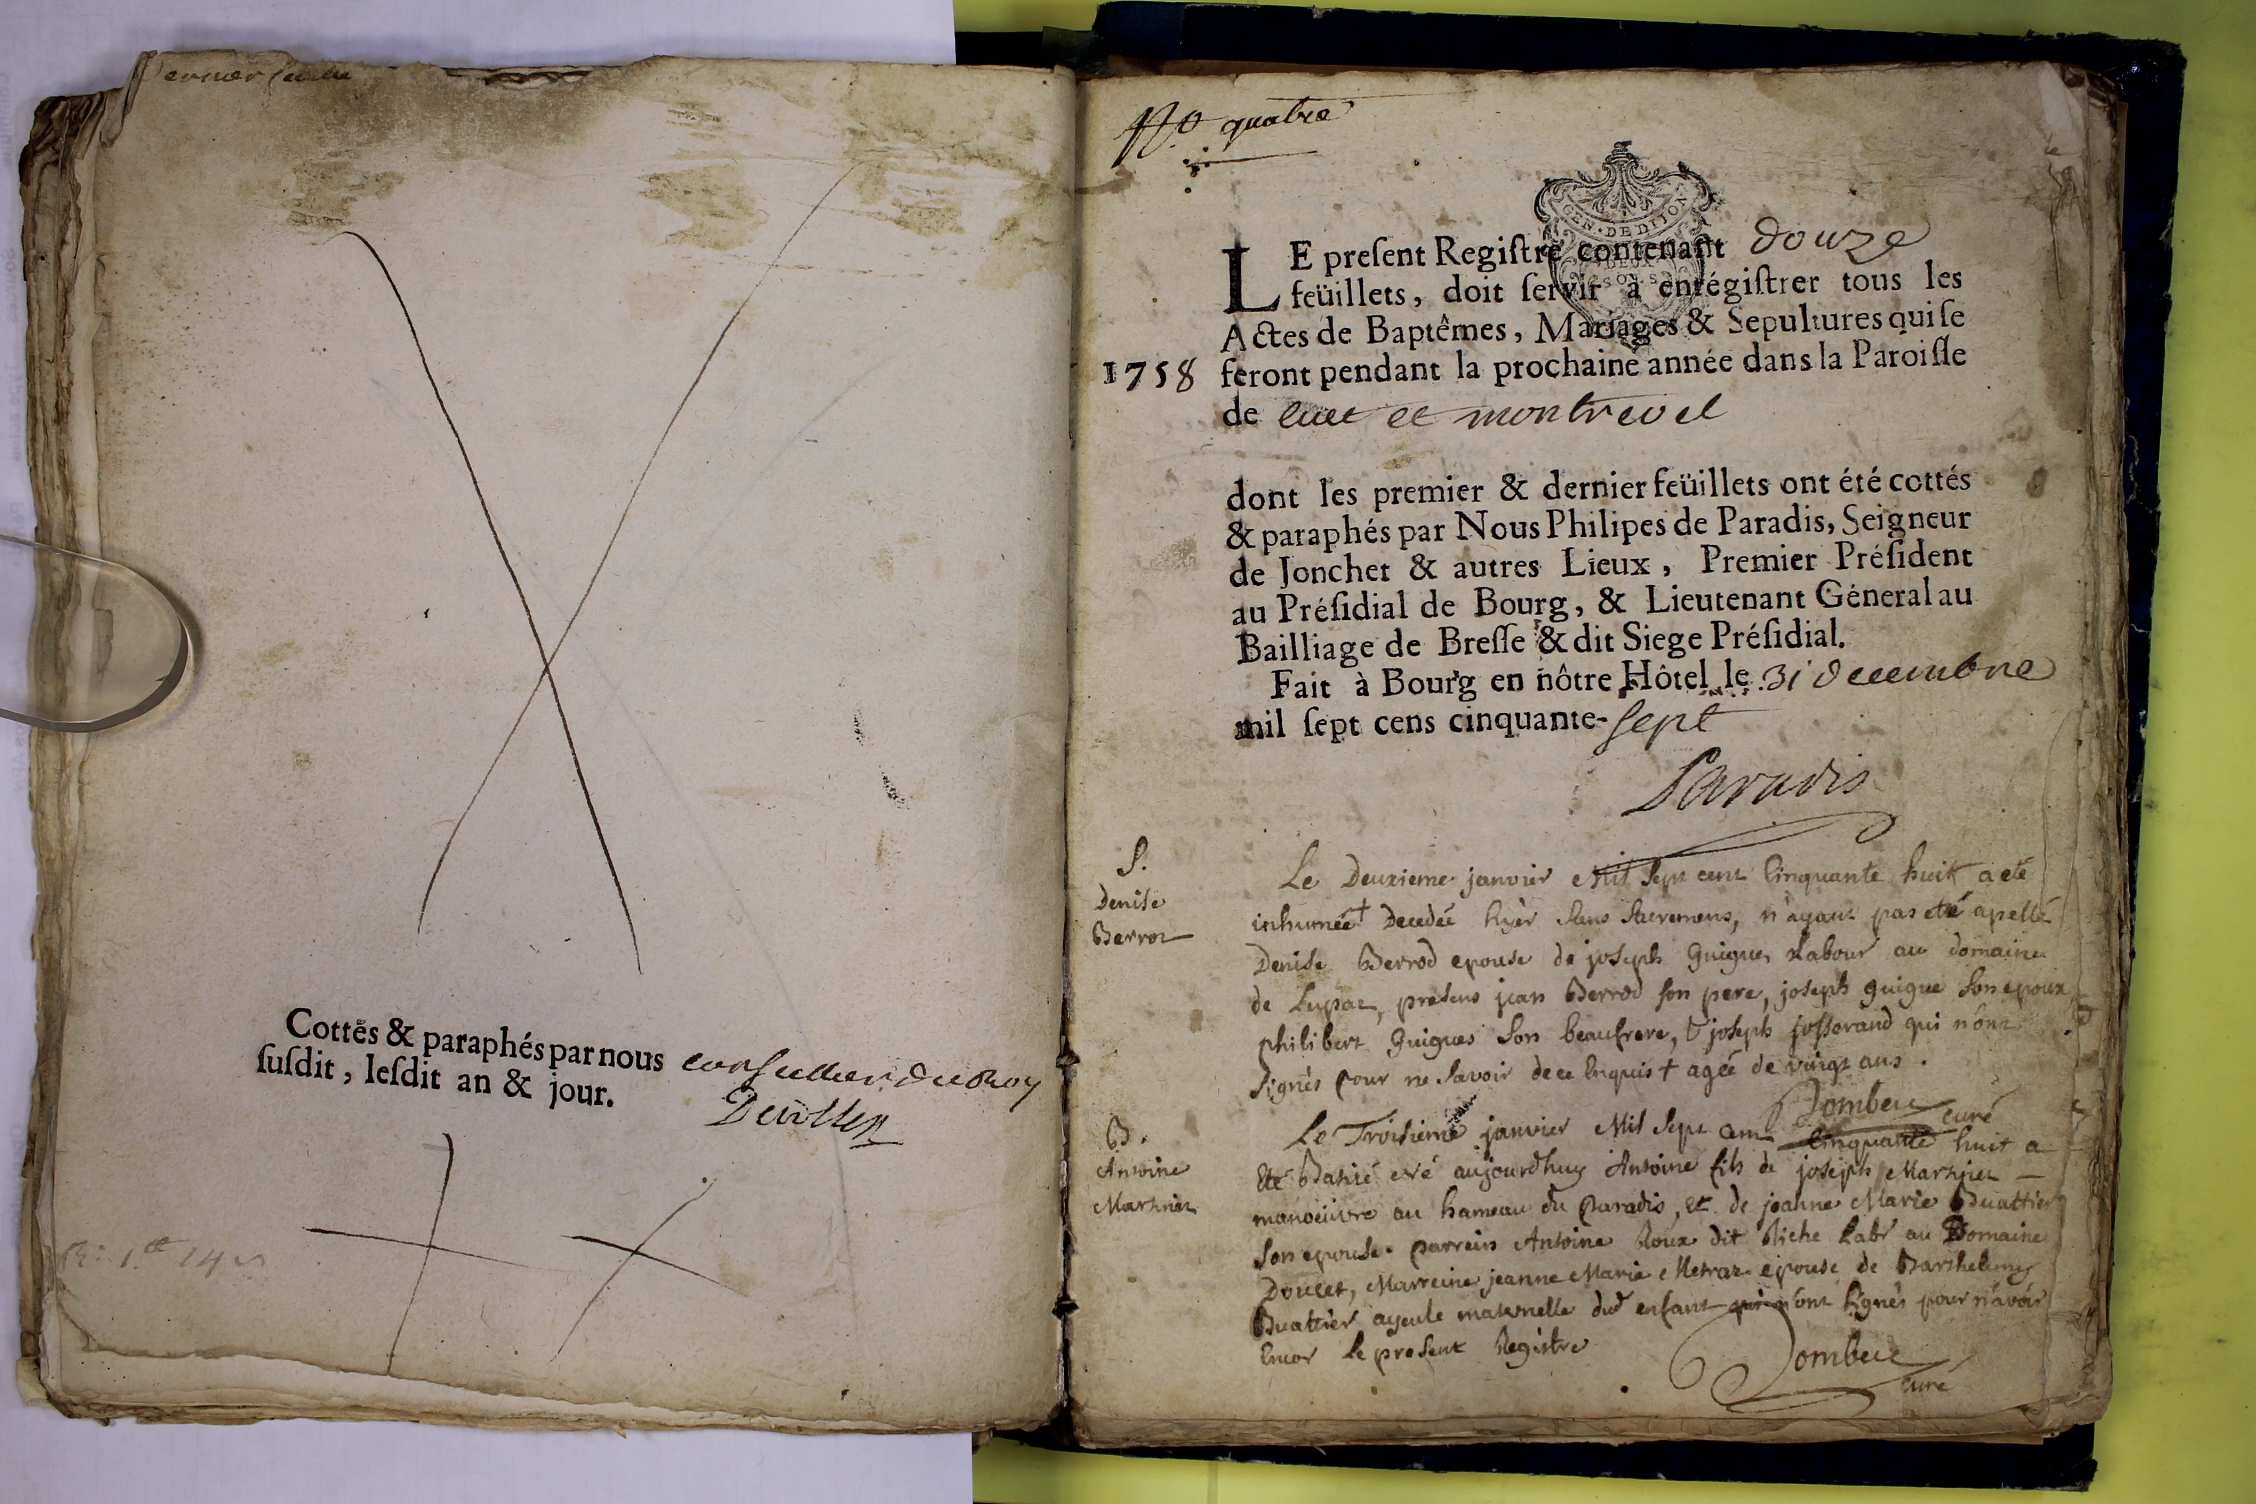 Dernier feuillet
Cottés & paraphés par nous conseiller du Roy
ſuſdit, leſdit an & jour.
No quatre
GEN · DE DIJON
DEUX
SOLS
LE preſent Regiſtre contenant douze
feüillets, doit ſervir à enrégiſtrer tous les
Actes de Baptêmes, Mariages & Sepultures qui ſe
1758 feront pendant la prochaine année dans la Paroiſſe
de cuet et montrevel
dont les premier & dernier feüillets ont été cottés
& paraphés par Nous Philipes de Paradis, Seigneur
de Jonchet & autres Lieux, Premier Préſident
au Préſidial de Bourg, & Lieutenant Géneral au
Bailliage de Breſſe & dit Siege Préſidial.
Fait à Bourg en nôtre Hôtel le 31 decembre
mil ſept cens cinquante-sept
Paradis
S.
Denise
Berrot
Le Deuxieme janvier Mil Sept cent Cinquante huit a eté
inhumée + Decedée hyer sans sacremens, n'ayant pas eté apellé
Denise Berrod epouse de joseph Guigue Labour au domaine
de Lupaz, presens jean Berrod son pere, joseph guigue son epoux
philibert Guigues son beaufrere, & joseph josserand qui n'ont
signés pour ne savoir de ce Enquis + agée de vingt ans.
Dombey curé
B.
Antoine
Marhniet
Le Troisieme janvier Mil Sept cent Cinquante huit a
eté Batisé né aujourdhuy Antoine fils de joseph
manoeuvre au hameau du Paradis, et de jeanne Marie Buattier
son epouse. parrein Antoine Roux dit Biche Labr au Domaine
Doucet, Marreine jeanne Marie Metraz epouse de Barthelemy
Buattier ayeule maternelle dud enfant qui n'ont signés pour n'avoir
Encor le present Registre
Dombey
curé